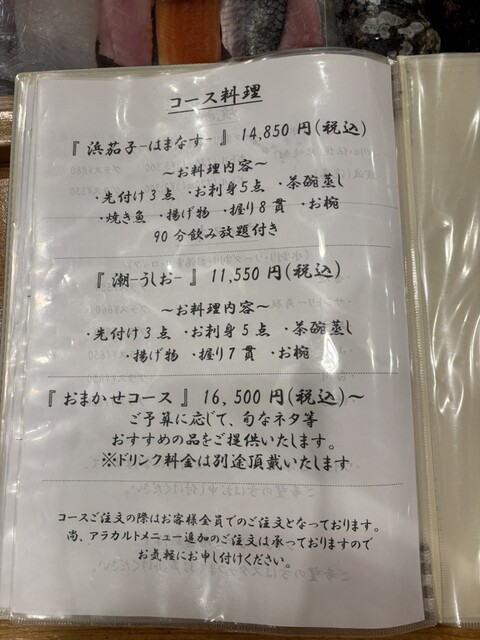 コース料理
『 浜茄子-はまなす- 』 14,850 円(税込)
～お料理内容～
・先付け3点 ・お刺身5点 ・茶碗蒸し
・焼き魚 ・揚げ物 ・握り8貫 ・お椀
90分飲み放題付き
『 潮-うしお- 』 11,550 円(税込)
～お料理内容～
・先付け3点 ・お刺身5点 ・茶碗蒸し
・揚げ物 ・握り7貫 ・お椀
『 おまかせコース 』 16,500 円(税込)～
ご予算に応じて、旬なネタ等
おすすめの品をご提供いたします。
※ドリンク料金は別途頂戴いたします
コースご注文の際はお客様全員でのご注文となっております。
尚、アラカルトメニュー追加のご注文は承っておりますので
お気軽にお申し付けください。